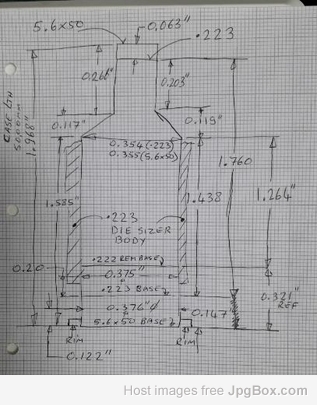 5.6x50
0.063"
.223
0.266"
0.203"
CASE LTH
1.968"
0.117"
0.115"
0.354 (.223)
0.355 (5.6x50)
1.760
1.585"
1.438
1.264"
.223
DIE SIZER
BODY
.222 REM BASE
0.20
0.375"
.223 BASE
0.321"
REF
0.376"ø
0.147
5.6x50 BASE
RIM
RIM
0.122"
Host images free at JpgBox.com